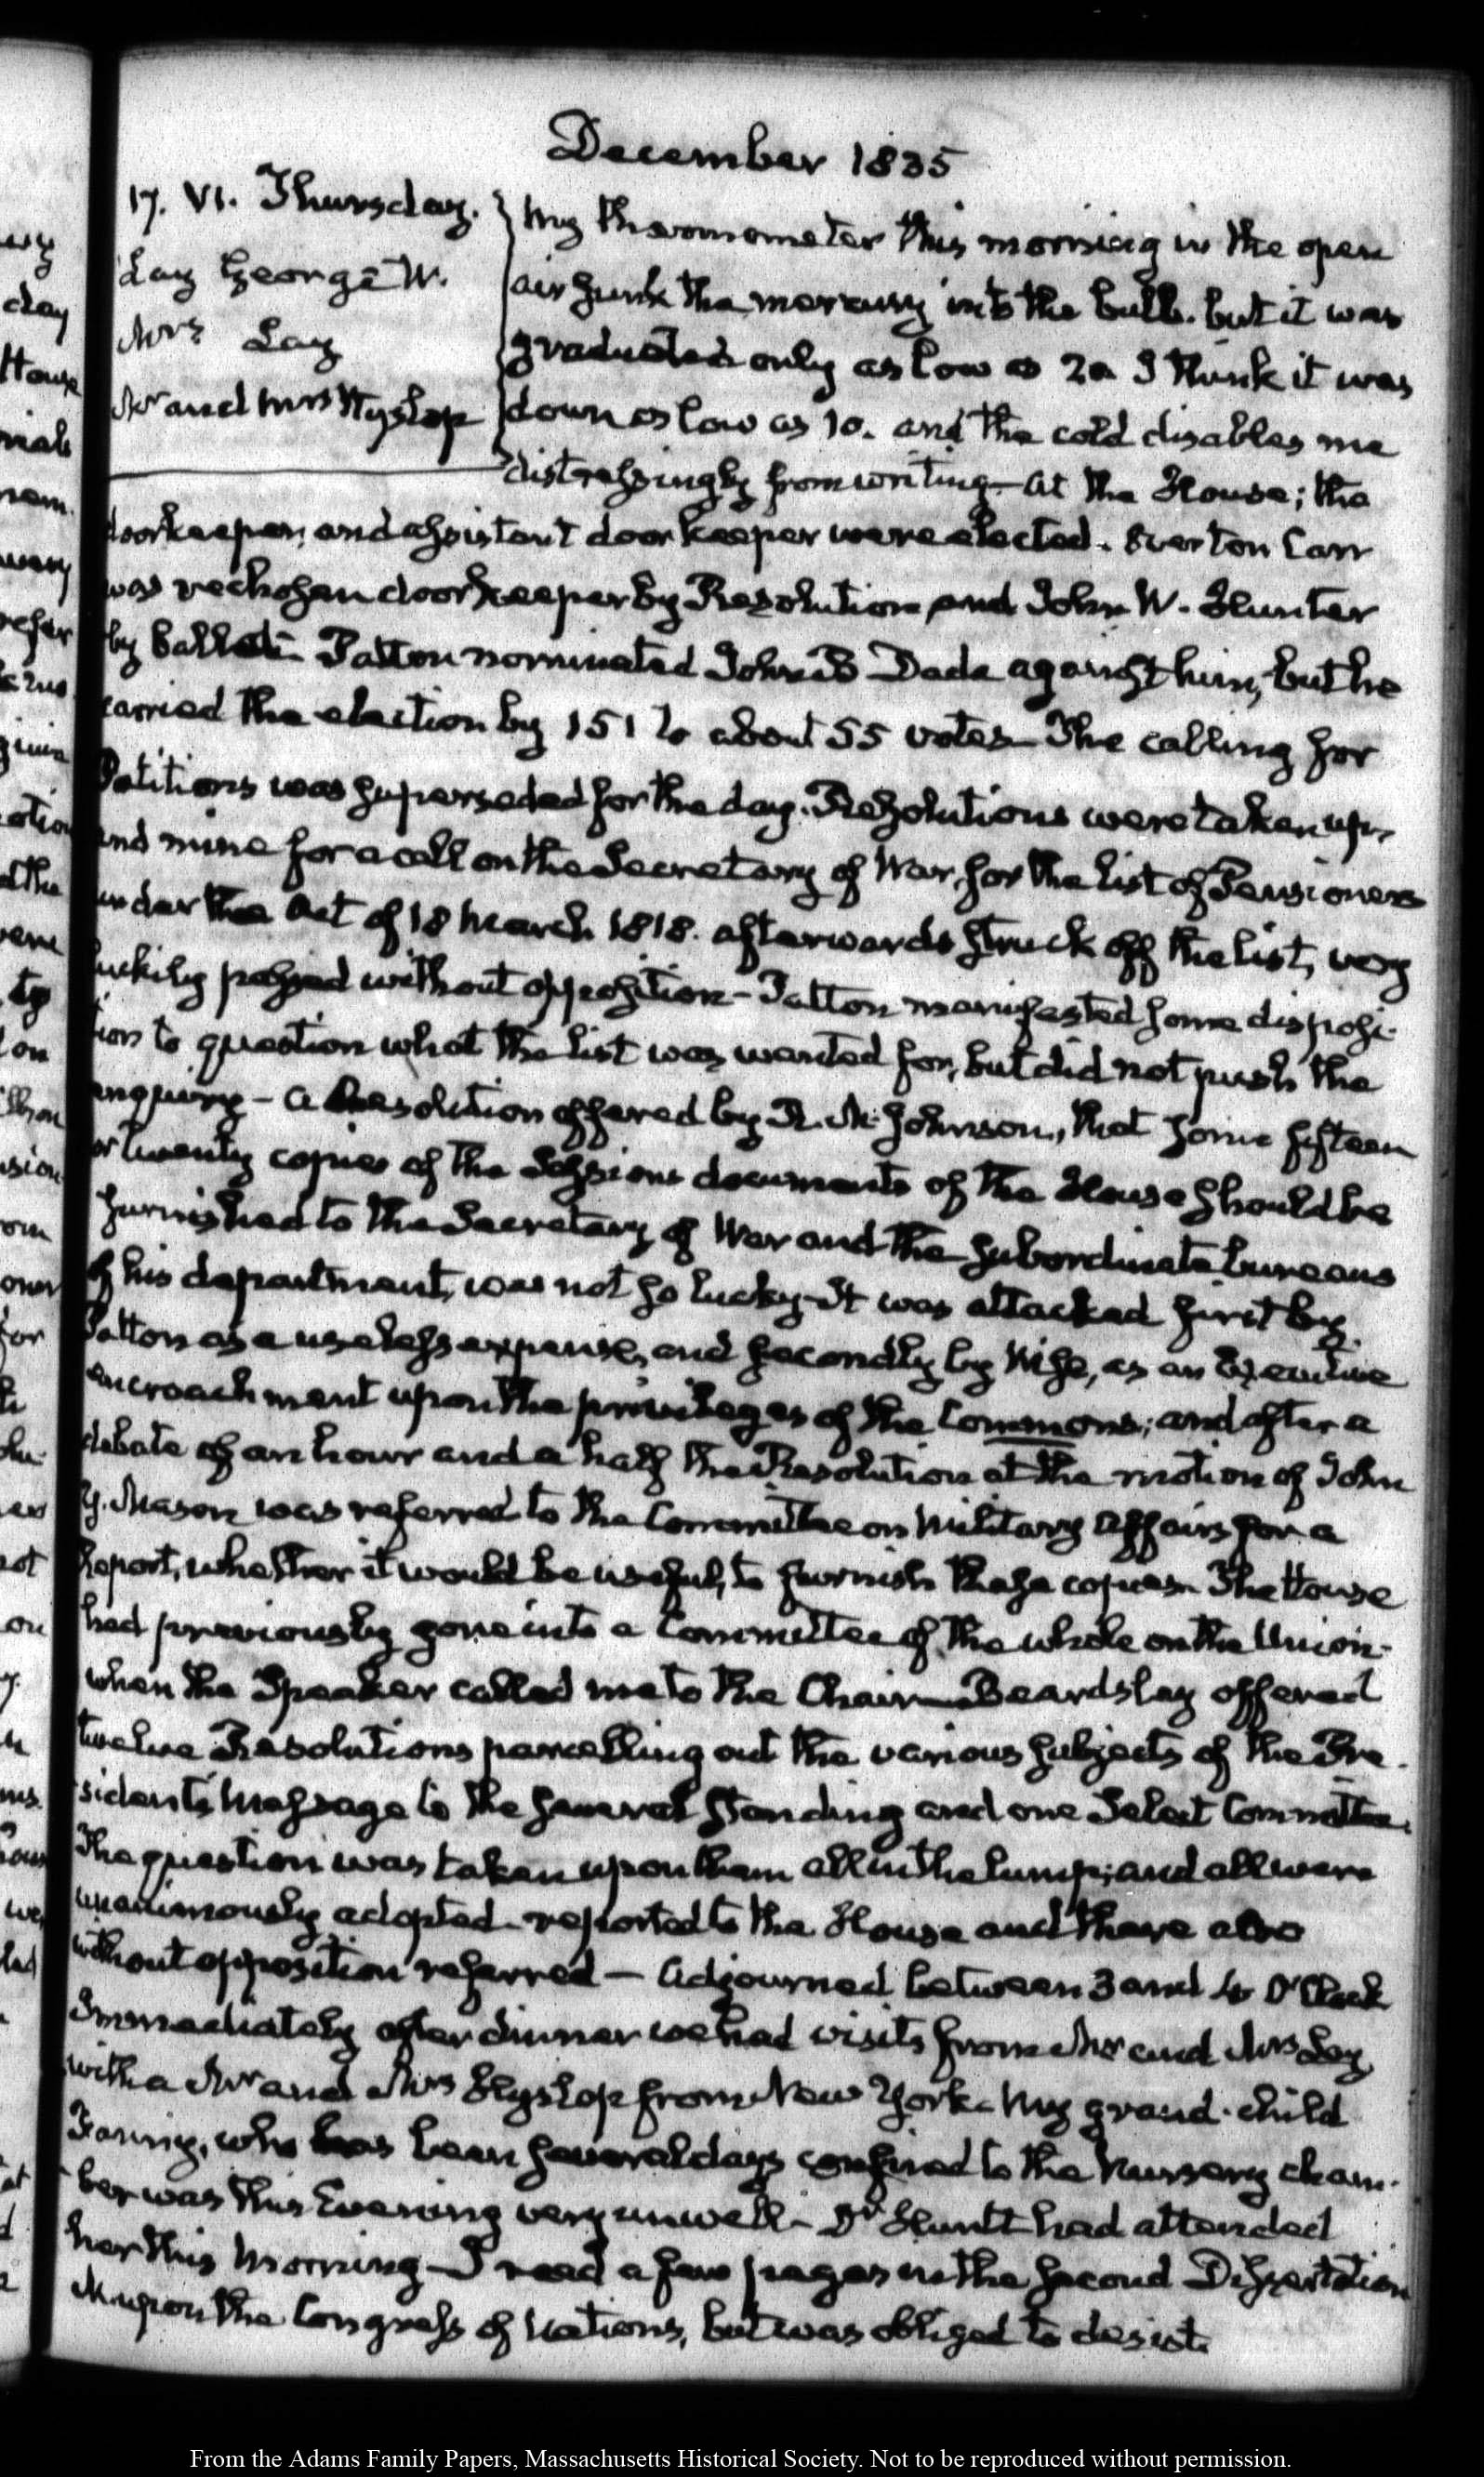 December 1835
17. VI. Thursday.
Lay George W.
Mrs Lay
Mr and Mrs Hyslop
My thermometer this morning in the open
air sunk the mercury into the bulb. but it was
graduated only as low as 2. I think it was
down as low as 10. and the cold disables me
distressingly from writing— At the House; the
doorkeeper, and assistant doorkeeper were elected. Overton Carr
was rechosen doorkeeper by Resolution and John W. Hunter
by ballot— Patton nominated John B Dade against him, but he
carried the election by 151 to about 55 votes— The calling for
Petitions was superseded for the day. Resolutions were taken up,
and mine for a call on the Secretary of War, for the list of Pensioners
under the Act of 18 March 1818. afterwards struck off the list, very
luckily passed without opposition— Patton manifested some disposi-
tion to question what the list was wanted for, but did not push the
enquiry— A Resolution offered by R. M. Johnson, that some fifteen
or twenty copies of the Sessions documents of the House should be
furnished to the Secretary of War and the subordinate bureaus
of his department, was not so lucky— It was attacked first by
Patton as a useless expense, and secondly by Wise, as an Executive
encroachment upon the privileges of the Commons; and after a
debate of an hour and a half the Resolution at the motion of John
Y. Mason was referred to the Committee on Military Affairs for a
Report, whether it would be useful, to furnish these copies— The House
had previously gone into a Committee of the whole on the Union-
when the Speaker called me to the Chair— Beardsley offered
twelve Resolutions parcelling out the various subjects of the Pre-
sident's Message to the several Standing and one Select Committee.
The question was taken upon them all in the lump; and all were
unanimously adopted— reported to the House and there also
without opposition referred— Adjourned between 3 and 4 O'Clock
Immediately after dinner we had visits from Mr and Mrs Lay
with a Mr and Mrs Hyslop from New York— My grand-child
Fanny, who has been several days confined to the Nursery cham-
ber was this Evening very unwell— Dr Huntt had attended
her this Morning— I read a few pages in the second Dissertation
upon the Congress of Nations, but was obliged to desist.
From the Adams Family Papers, Massachusetts Historical Society. Not to be reproduced without permission.